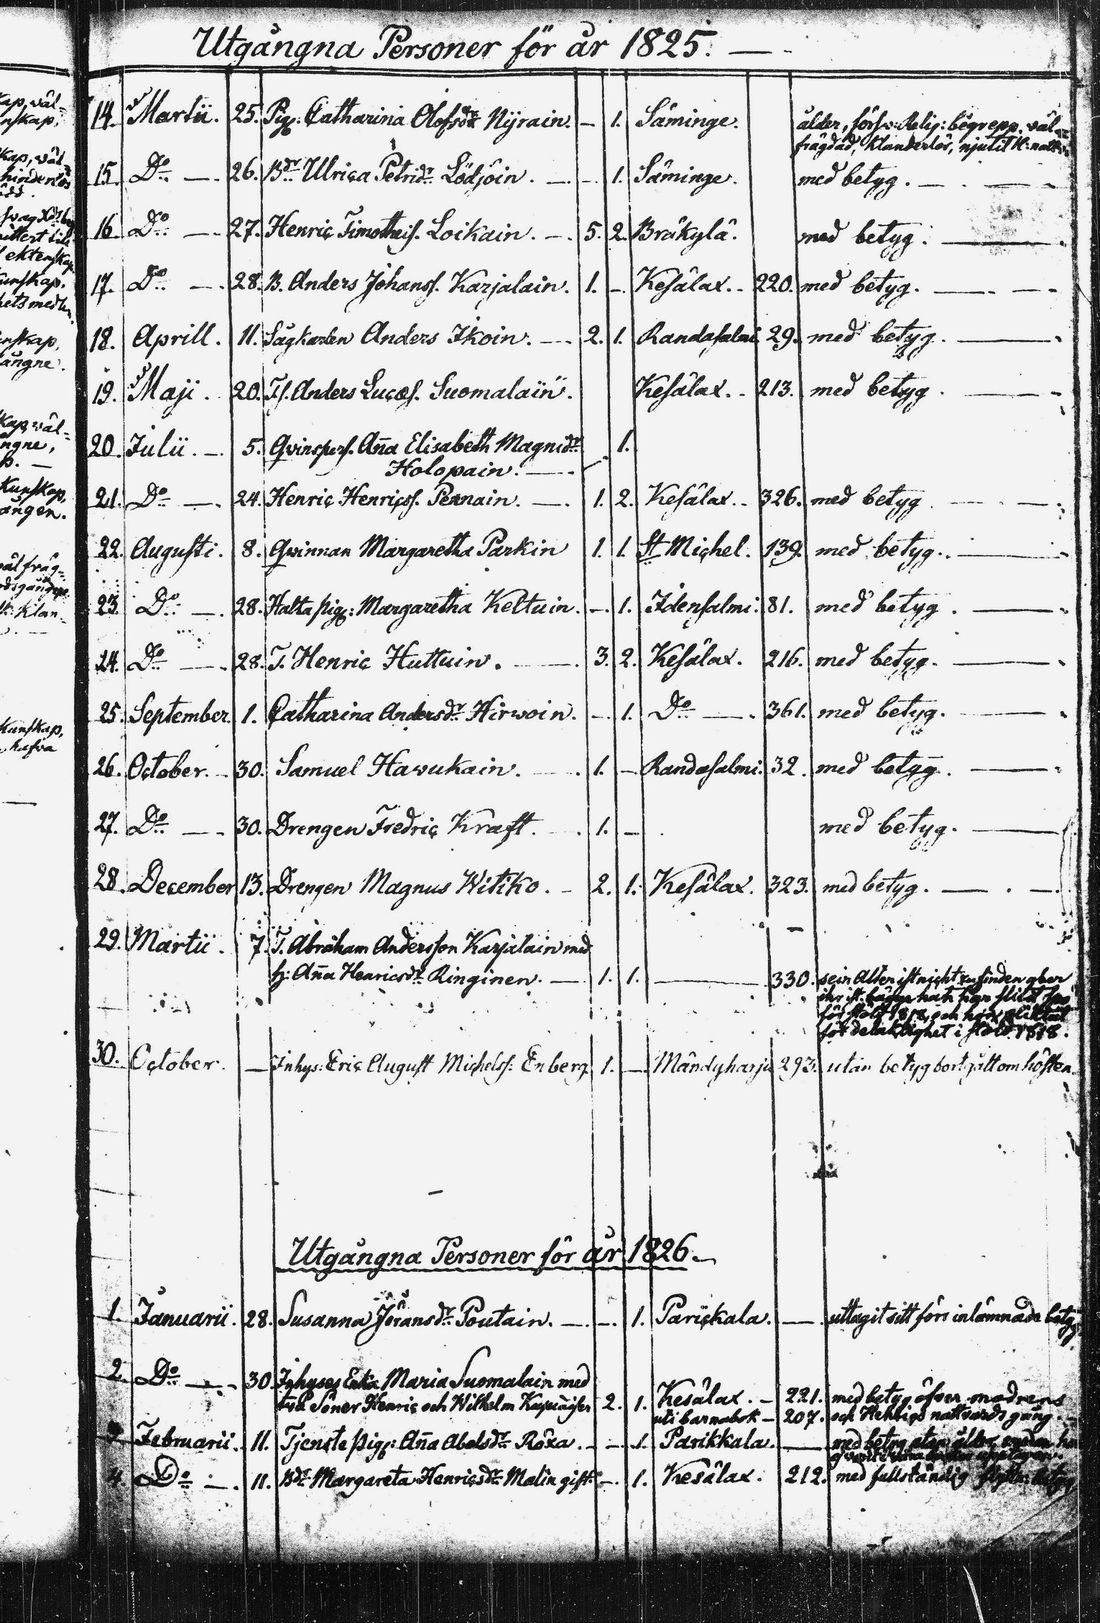 Utgångna Personer för år 1825. —
14. Martii. 25. Pig: Catharina Olofsdr Nÿrain. – 1. Säminge. ålder, förs: Relig: begrepp. väl
frägdad, klanderlös, njutit H: natt
15. Do — 26. Bdr Ulrica Petridr Lödjöin. — – 1. Säminge. med betyg. —
16. Do — 27. Henric Timotheif. Loikain. — 5. 2. Bräkylä. med betyg. —
17. Do — 28. B. Anders Johansf. Karjalain. 1. – Kesälax. – 220. med betyg. —
18. Aprill. 11. Sågkarlen Anders Ikoin. — 2. 1. Randasalmi 29. med betyg. —
19. Maji. 20. Tf. Anders Lucæf. Suomalain. Kesälax. – 213. med betyg. —
20. Julii. – 5. Qvinspers. Aña Elisabeth Magnidr
Holopain. — – 1.
21. Do — 24. Henric Henricsf. Pennain. — 1. 2. Kesälax. – 326. med betyg
22. Augusti. 8. Qwinnan Margaretha Parkin 1. 1. St Michel. 139. med betyg. —
23. Do — 28. Halta pig: Margaretha Keltuin. – 1. Idensalmi. 81. med betyg. —
24. Do — 28. T. Henric Huttuin. — 3. 2. Kesälax. 216. med betyg. —
25. September 1. Catharina Andersdr Hirwoin. – 1. Do — 361. med betyg. —
26. October. – 30. Samuel Havukain. — 1. – Randasalmi. 32. med betyg. —
27. Do — 30. Drengen Fredric Kraft. 1. – med betyg. —
28. December 13. Drengen Magnus Witiko. – 2. 1. Kesälax. 323. med betyg. —
29. Martii. 7. T. Abraham Andersson Karjalain med
h: Aña Henricsdr Ringinen. — 1. 1. — 330. sein Alter ist nicht zu finden aber
för stöld 1818, och hon pliktat
för delaktighet i stöld 1818.
30. October. — Inhys: Eric August Michelsf. Enberg 1. – Mändyharju 293. utan betyg bortgått om hösten
Utgångna Personer för år 1826. –
1. Januarii. 28. Susanna Jöransdr Poutain. — – 1. Parickala. — uttagit sitt förr inlämnade betyg
2. Do — 30. Inhyses Enka Maria Suomalain med
två Söner Henric och Wilhelm 2. 1. Kesälax. – 221. med betyg öfver modrens
uti barnabok – 207. och Henrics nattvards gång
3. Februarii. 11. Tjenste pig: Aña Abelsdr Röxa. – – 1. Parikkala. — med betyg
4. Do — 11. Bdr Margareta Henricsdr Malin gift – 1. Kesälax. 212. med fullständig flyttn: betyg